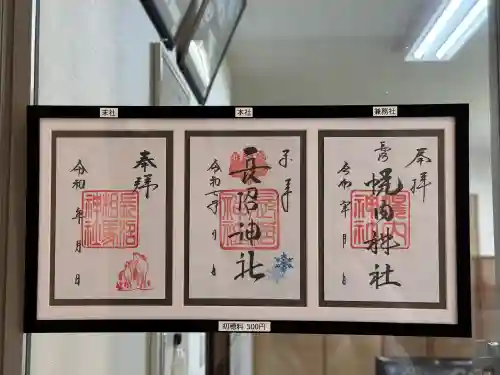 末社
本社
兼務社
奉拝
長沼
相馬
神社
令和 年 月 日
奉拝
長沼神社
令和 年 月 日
奉拝
幌内神社
令和 年 月 日
初穂料 300円